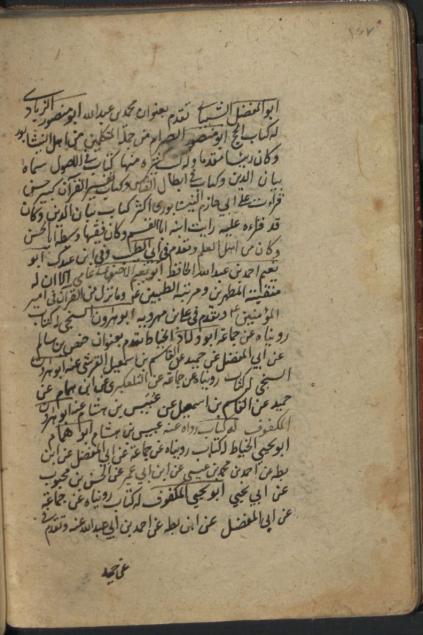 ١٤٧
ابو المفضل الشيباني تقدم بعنوان محمد بن عبد الله ابو منصور الزيادي
له كتاب الحج ابو منصور الصرام من جلة المتكلمين من اهل النيشابور
وكان رئيسا مقدما وله كتب كثيرة منها كتاب في الاصول سماه
بيان الدين وكتاب في ابطال القياس وكتاب تفسير القرآن كبير حسن
قرات على ابي حازم النيشابوري اكثر كتاب بيان الدين وكان
قد قراه عليه رايت ابنه ابا القسم وكان فقيها وسبطه ابا الحسن
وكان من اهل العلم وتقدم في ابي الطيب وفي ابن عبدك ابو
نعيم احمد بن عبد الله الحافظ ابو نعيم الاصفهاني عامي الا ان له
منقبة المطهرين ومرتبة الطيبين وما نزل من القرآن في امير
المؤمنين ع وتقدم في علي بن مهرويه ابو هرون السنجي له كتاب
رويناه عن جماعة ابو ولاد الحناط تقدم بعنوان حفص بن سالم
عن ابي المفضل عن حميد عن القاسم بن اسمعيل القرشي عنه ابو هرون
السنجي له كتاب رويناه عن جماعة عن التلعكبري عن ابن همام عن
حميد عن القاسم بن اسمعيل عن عبيس بن هشام عنه ابو هرون
المكفوف له كتاب رواه عنه عبيس بن هشام ابو همام
ابو يحيى الحناط له كتاب رويناه عن جماعة عن ابي المفضل عن ابن
بطه عن احمد بن محمد بن عيسى عن ابن ابي عمير عن الحسن بن محبوب
عن ابي يحيى ابو يحيى المكفوف له كتاب رويناه عن جماعة
عن ابي المفضل عن ابن بطه عن احمد بن ابي عبد الله عنه وتقدم في